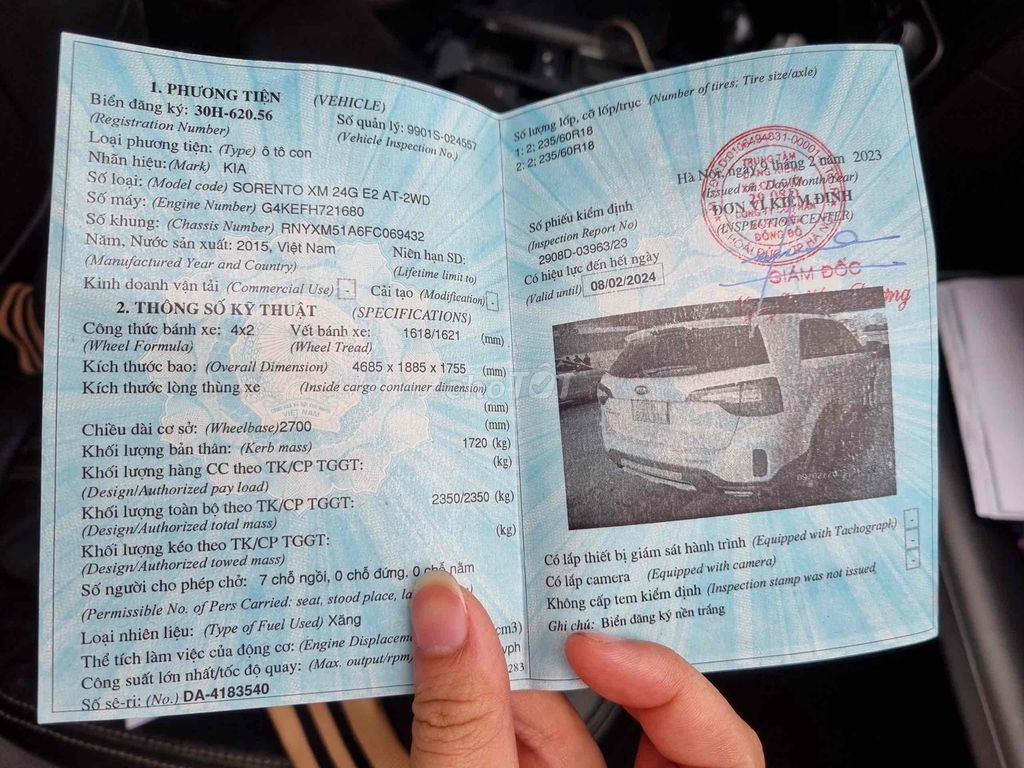 1. PHƯƠNG TIỆN (VEHICLE)
Biển đăng ký: 30H-620.56 Số quản lý: 9901S-024567
(Registration Number) (Vehicle Inspection No.)
Loại phương tiện: (Type) ô tô con
Nhãn hiệu: (Mark) KIA
Số loại: (Model code) SORENTO XM 24G E2 AT-2WD
Số máy: (Engine Number) G4KEFH721680
Số khung: (Chassis Number) RNYXM51A6FC069432
Năm, Nước sản xuất: 2015, Việt Nam Niên hạn SD:
(Manufactured Year and Country) (Lifetime limit to)
Kinh doanh vận tải (Commercial Use) - Cải tạo (Modification) -
2. THÔNG SỐ KỸ THUẬT (SPECIFICATIONS)
Công thức bánh xe: 4x2 Vết bánh xe: 1618/1621 (mm)
(Wheel Formula) (Wheel Tread)
Kích thước bao: (Overall Dimension) 4685 x 1885 x 1755 (mm)
Kích thước lòng thùng xe (Inside cargo container dimension)
(mm)
Chiều dài cơ sở: (Wheelbase) 2700 (mm)
Khối lượng bản thân: (Kerb mass) 1720 (kg)
Khối lượng hàng CC theo TK/CP TGGT: (kg)
(Design/Authorized pay load)
Khối lượng toàn bộ theo TK/CP TGGT: 2350/2350 (kg)
(Design/Authorized total mass)
Khối lượng kéo theo TK/CP TGGT: (kg)
(Design/Authorized towed mass)
Số người cho phép chở: 7 chỗ ngồi, 0 chỗ đứng, 0 chỗ nằm
(Permissible No. of Pers Carried: seat, stood place,
Loại nhiên liệu: (Type of Fuel Used) Xăng
Thể tích làm việc của động cơ: (Engine cm3)
Công suất lớn nhất/tốc độ quay: (Max. output/rpm) vph
Số sê-ri: (No.) DA-4183540 283
Số lượng lốp, cỡ lốp/trục (Number of tires; Tire size/axle)
1: 2; 235/60R18
2: 2; 235/60R18
Hà Nội, ngày 9 tháng 2 năm 2023
(Issued on: Day/Month/Year)
ĐƠN VỊ KIỂM ĐỊNH
(INSPECTION CENTER)
TRUNG TÂM
ĐỒNG BỘ
GIÁM ĐỐC
Số phiếu kiểm định
(Inspection Report No)
2908D-03963/23
Có hiệu lực đến hết ngày
(Valid until) 08/02/2024
CHỢ TỐT
VIỆT NAM
Có lắp thiết bị giám sát hành trình (Equipped with Tachograph) -
Có lắp camera (Equipped with camera) -
Không cấp tem kiểm định (Inspection stamp was not issued -
Ghi chú: Biển đăng ký nền trắng